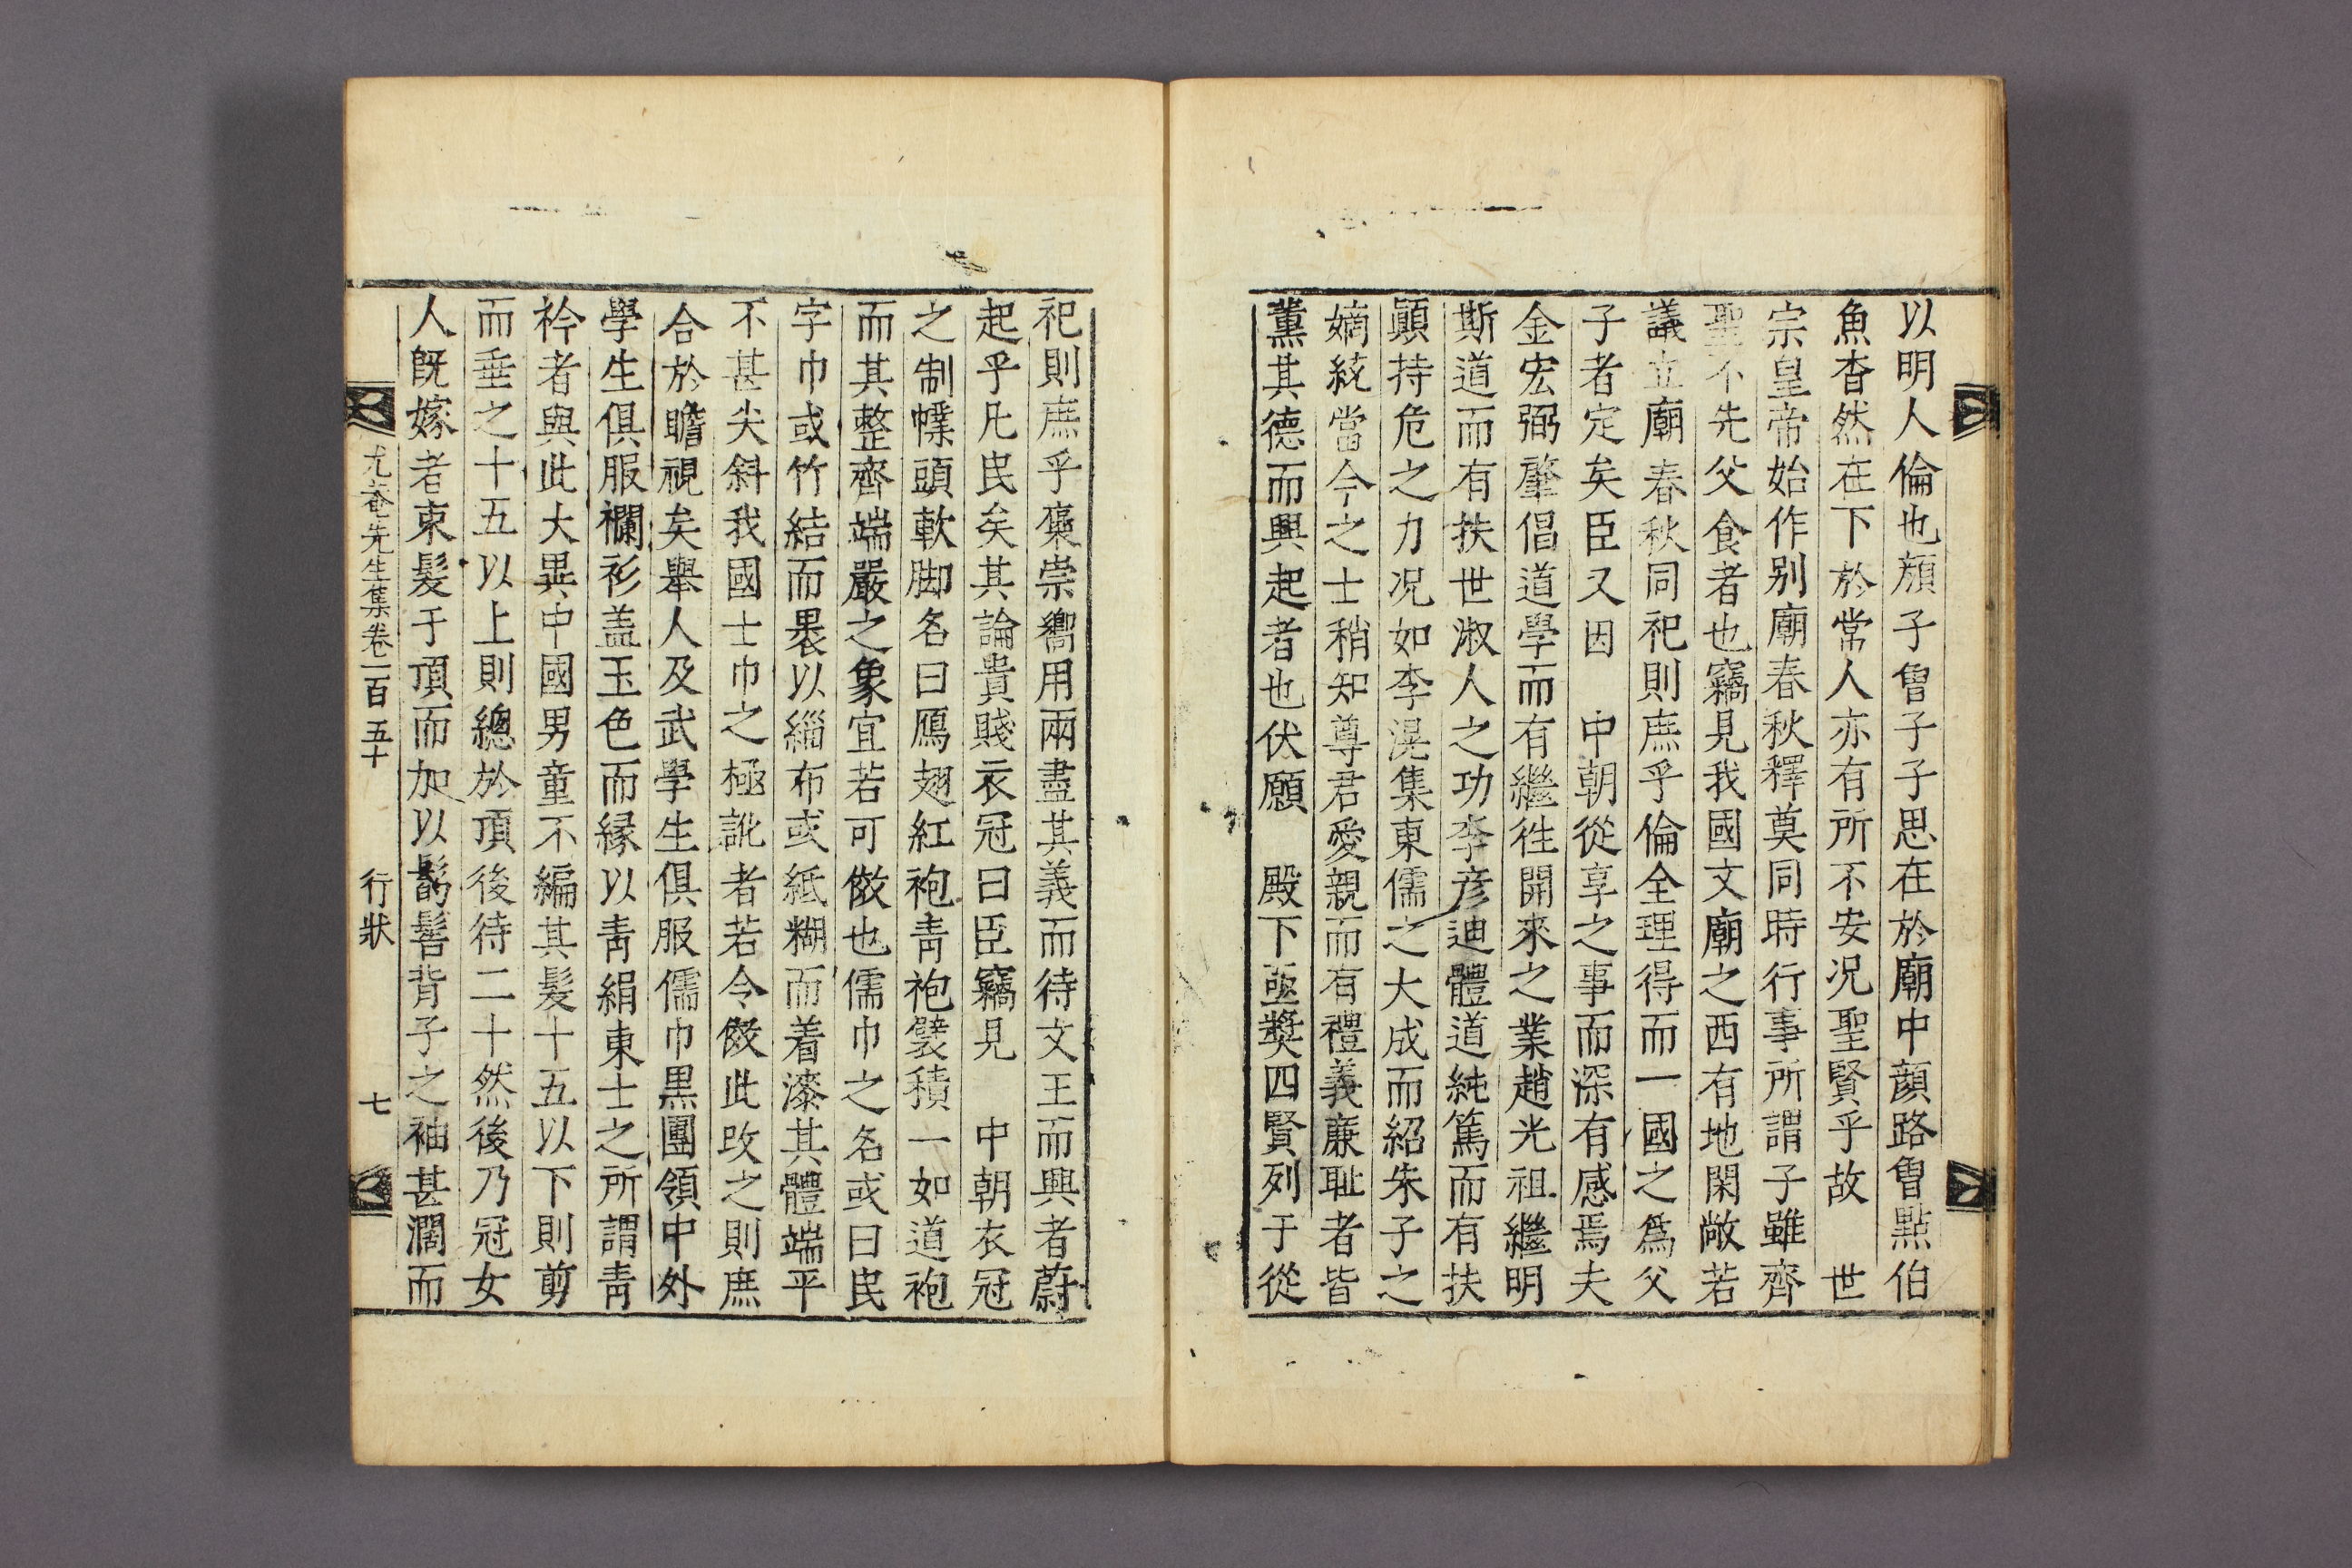 以明人倫也顏子曾子子思在於廟中顏路曾點伯
魚杳然在下於常人亦有所不安况聖賢乎故　世
宗皇帝始作別廟春秋釋奠同時行事所謂子雖齊
聖不先父食者也竊見我國文廟之西有地閑敞若
議立廟春秋同祀則庶乎倫全理得而一國之爲父
子者定矣臣又因　中朝從享之事而深有感焉夫
金宏弼肇倡道學而有繼徃開來之業趙光祖繼明
斯道而有扶世淑人之功李彦迪體道純篤而有扶
顚持危之力况如李滉集東儒之大成而紹朱子之
嫡統當今之士稍知尊君愛親而有禮義廉耻者皆
薰其德而興起者也伏願　殿下亟奬四賢列于從
祀則庶乎褒崇嚮用兩盡其義而待文王而興者蔚
起乎凡民矣其論貴賤衣冠曰臣竊見　中朝衣冠
之制幞頭軟脚名曰鴈翅紅袍靑袍襞積一如道袍
而其整齊端嚴之象宜若可倣也儒巾之名或曰民
字巾或竹結而裹以緇布或紙糊而着漆其體端平
不甚尖斜我國士巾之極訛者若令倣此改之則庶
合於瞻視矣舉人及武學生俱服儒巾黑團領中外
學生俱服襴衫盖玉色而緣以靑絹東士之所謂靑
衿者與此大異中國男童不編其髮十五以下則剪
而垂之十五以上則總於頂後待二十然後乃冠女
人旣嫁者束髮于頂而加以鬏髻背子之袖甚濶而
尤菴先生集卷一百五十　行狀　七